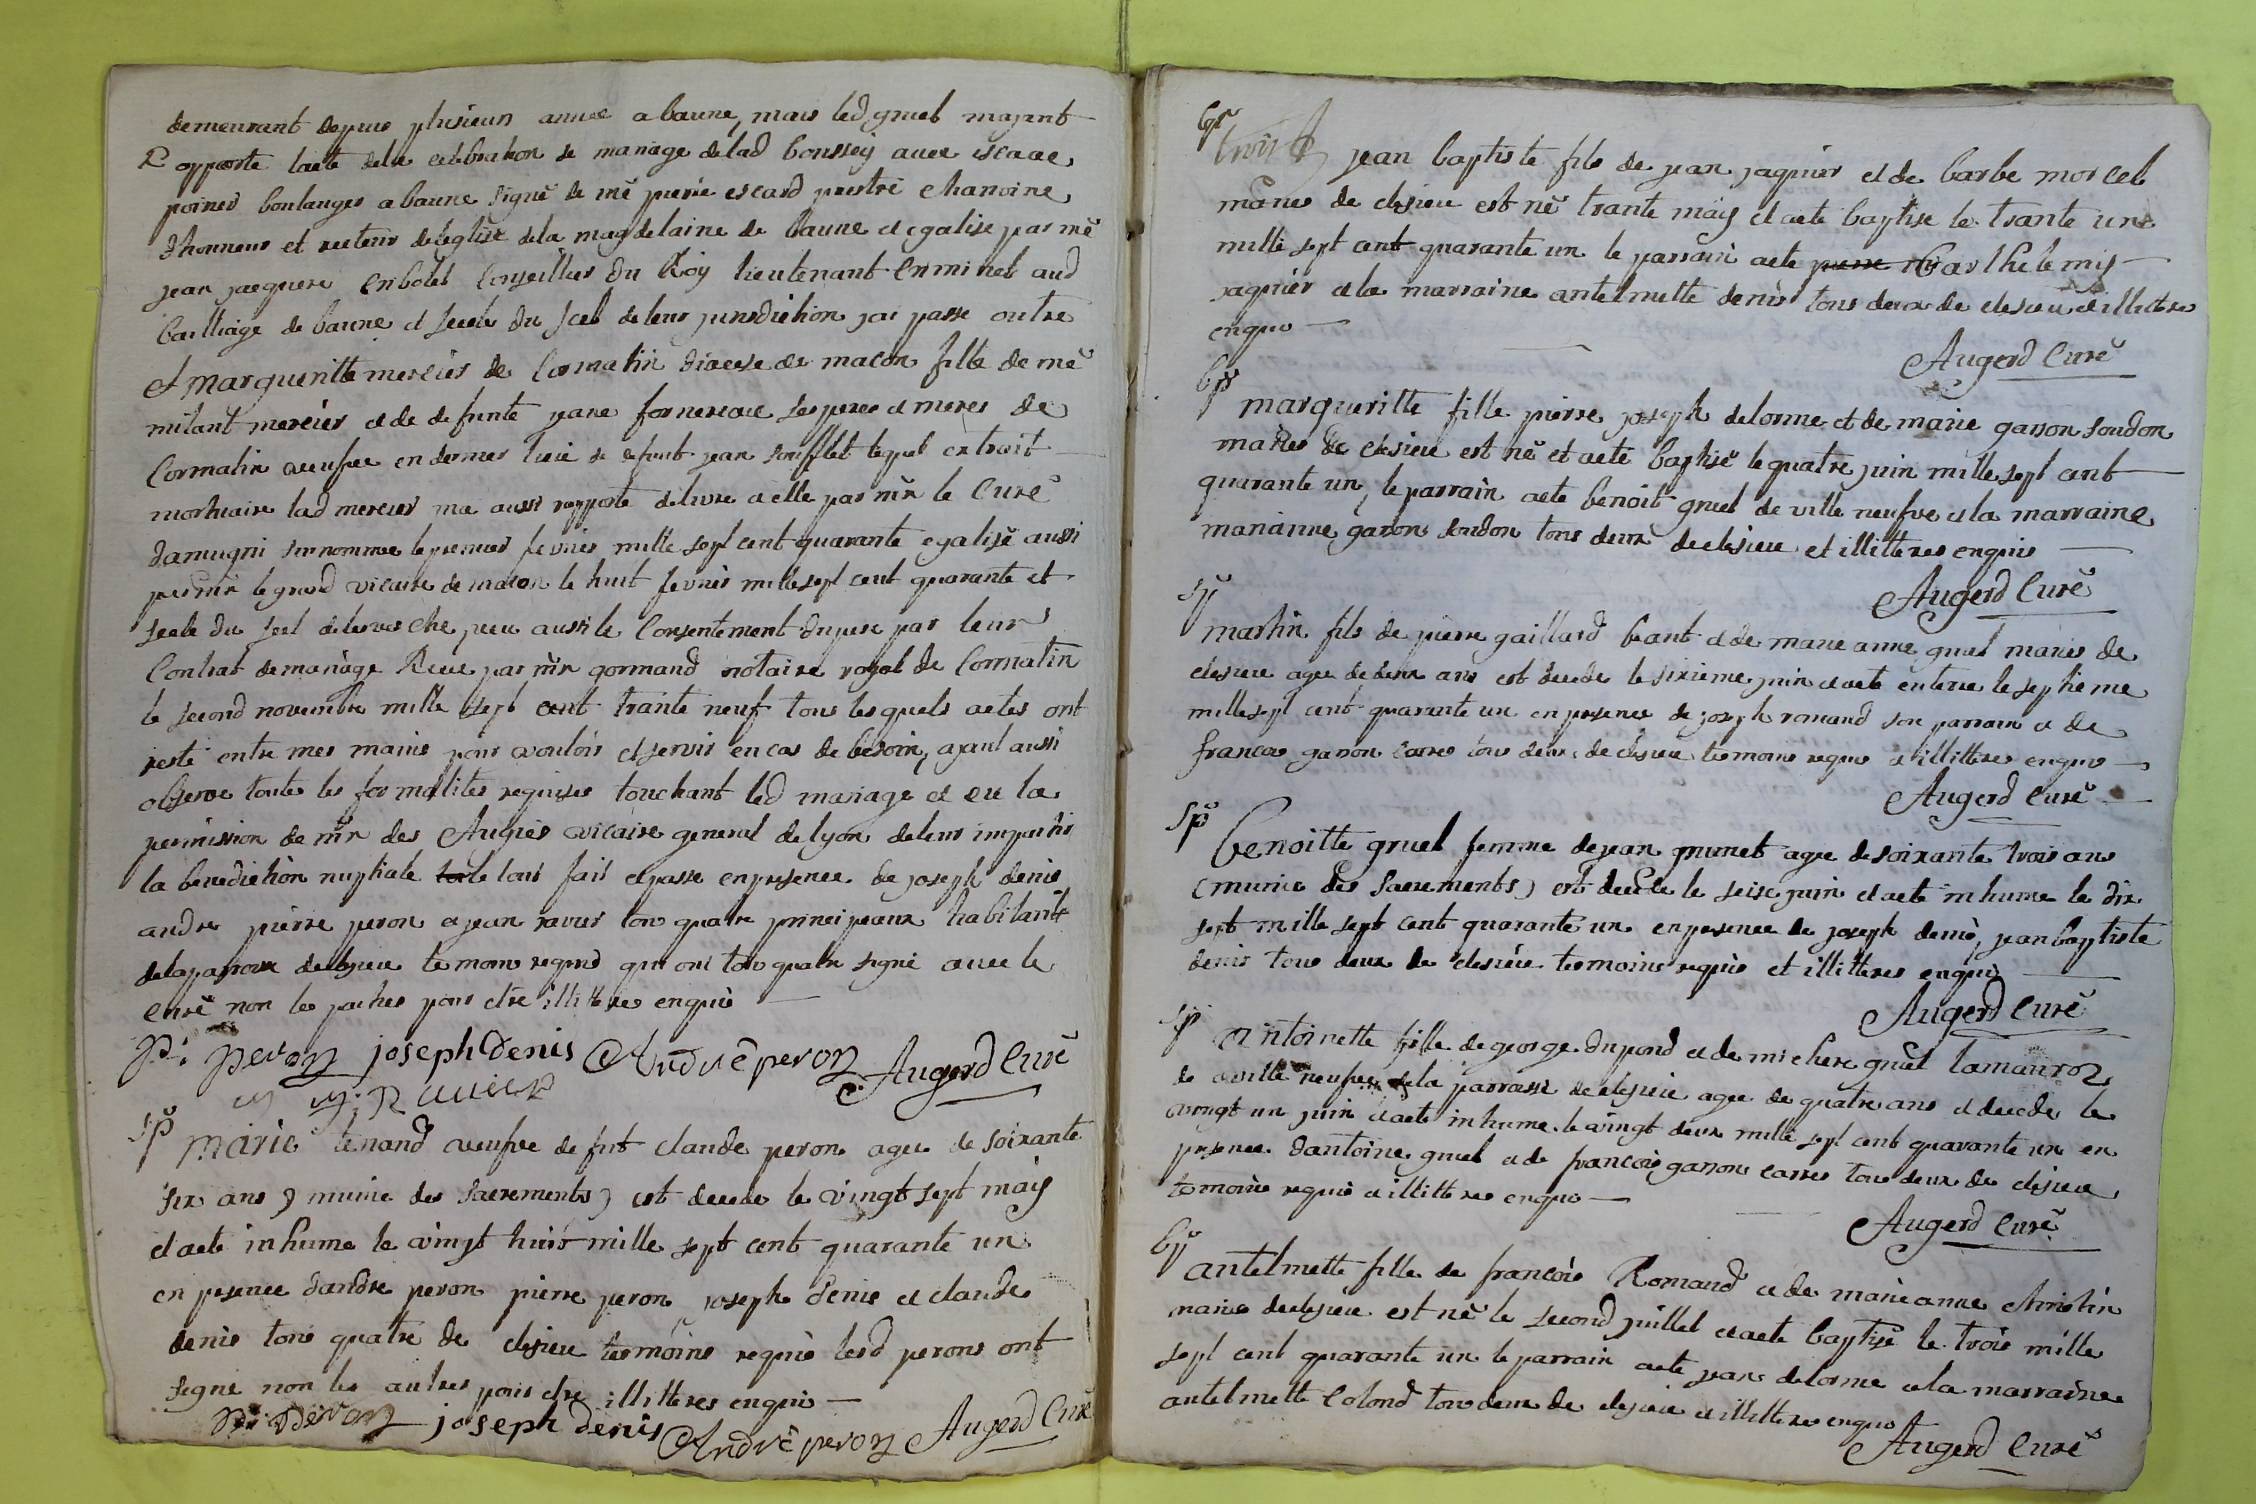 demeurant depuis plusieurs annee a baune, mais led gruel mayant
R apporte lacte dela celebration de mariage delad boussey avec iscaac
poines boulanger a baune signé de mē pierre escard prestre chanoine
dhonneur et recteur deleglise dela magdelaine de baune et egalise par mē
jean jacquere Conseillier du Roy lieutenant criminel aud
bailliage de baune et scele du scel de leur jurisdiction jai passe outre
et marguerittte mercier de Cormatin diocese de macon fille de mē
milant mercier et de defunte jeane fornereaue ses peres et meres de
Cormatin veufve en dernier lieu de defunt jean soufflet lequel extrait
mortuaire lad mercier ma aussi rapporté delivre a elle par mr le Curé
damugni surnomme le premier fevrier mille sept cent quarante egalisé aussi
par mr le grand vicaire de macon le huit fevrier mille sept cent quarante et
scele du scel de levesche, veu aussi le Consentement du pere par leur
Contrat de mariage Receu par mr gormand notaire royal de Cormatin
le second novembre mille sept cent trante neuf tous les quels actes ont
resté entre mes mains pour valoir et servir en cas de besoin, ayant aussi
observe toutes les formalites requises touchant led mariage et eu la
permission de mr des Augiés vicaire general de lyon de leur impartir
la benediction nuptiale le tout fait et passe en presence de joseph denis
andre pierre peron et jean ravier tous quatre principeaux habitants
dela parroisse declesieu temoins requis qui ont tous quatre signé avec le
Curé non les parties pour etre illitteres enquis
pi: peron joseph denis André peron Augerd Curé
j: Ravier
sp marie tenand veufve de fut claude peron agee de soixante
six ans (munie des sacrements) est decede le vingt sept may
et aete inhume le vingt huit mille sept cent quarante un
en presence dandre peron pierre peron joseph denis et claude
denis tous quatre de clesieu temoins requis lesd perons ont
signe non les autres pour etre illitteres enquis
pi: peron joseph denis André peron Augerd Curé
bp
jean baptiste fils de jean jaquier et de barbe morcel
mariés de clesieu est né trante may et aete baptise le trante une
mille sept cent quarante un le parrain aete pierre barthelemy
jaquier et la marraine antelmette denis tous deux de clesieu et illitteres
enquis
Augerd Curé
bp
margueritte fille pierre joseph delorme et de marie garron soudon
mariés de clesieu est né et aeté baptisé le quatre juin mille sept cent
quarante un, le parrain aete benoit gruel de ville neufve et la marraine
marianne garron soudon tous deux declesieu et illitteres enquis
Augerd Curé
sp
martin fils de pierre gaillard beant et de marie anne gruel mariés de
clesieu agee de deux ans est decede le sixieme juin et aete enterre le septieme
mille sept cent quarante un en presence de joseph romand son parrain et de
francois garron carres tous deux de clesieu temoins requis et illitteres enquis
Augerd Curé
sp
benoitte gruel femme dejean grumet agee de soixante trois ans
(munie des sacrements) est decede le seise juin et aete inhume le dix
sept mille sept cent quarante un en presence de joseph denis, jean baptiste
denis tous deux de clesieu temoins requis et illitteres enquis
Augerd Curé
sp antoinette fille de george dupond et de michere gruel lamauron
de ville neufve dela parrasse de clesieu agee de quatre ans et decede le
vingt un juin et aete inhume le vingt deux mille sept cent quarante un en
presence dantoine gruel et de francois garron carres tous deux de clesieu
temoins requis et illitteres enquis
Augerd Curé
bp
antelmette fille de francois Romand et de marieanne christin
mariés declesieu est né le second juillet et aete baptisé le trois mille
sept cent quarante un le parrain aete jean delorme et la marraine
antelmette Colond tous deux de clesieu et illitteres enquis
Augerd Curé